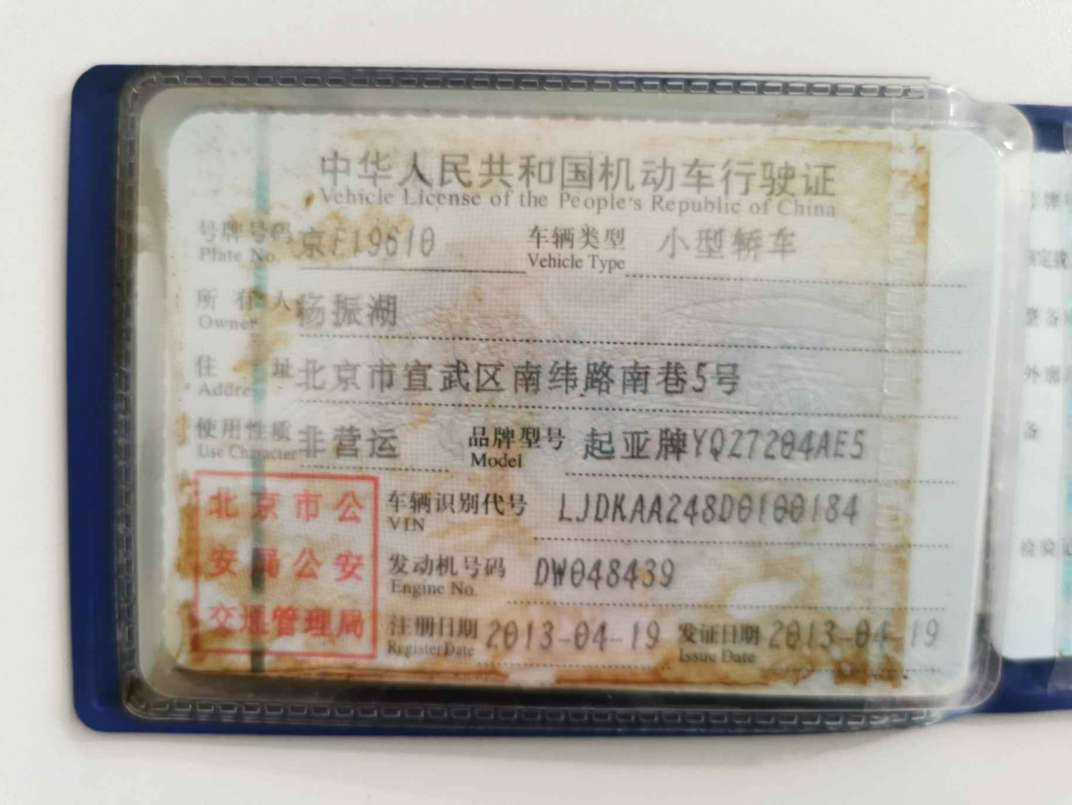 中华人民共和国机动车行驶证
Vehicle License of the People's Republic of China
号牌号码 京F19610 车辆类型 小型轿车
Plate No. Vehicle Type
所有人 杨振湖
Owner
住址 北京市宣武区南纬路南巷5号
Address
使用性质 非营运 品牌型号 起亚牌YQZ7204AE5
Use Character Model
北京市公
安局公安
交通管理局
车辆识别代号 LJDKAA248D0100184
VIN
发动机号码 DW048439
Engine No.
注册日期 2013-04-19 发证日期 2013-04-19
Register Date Issue Date